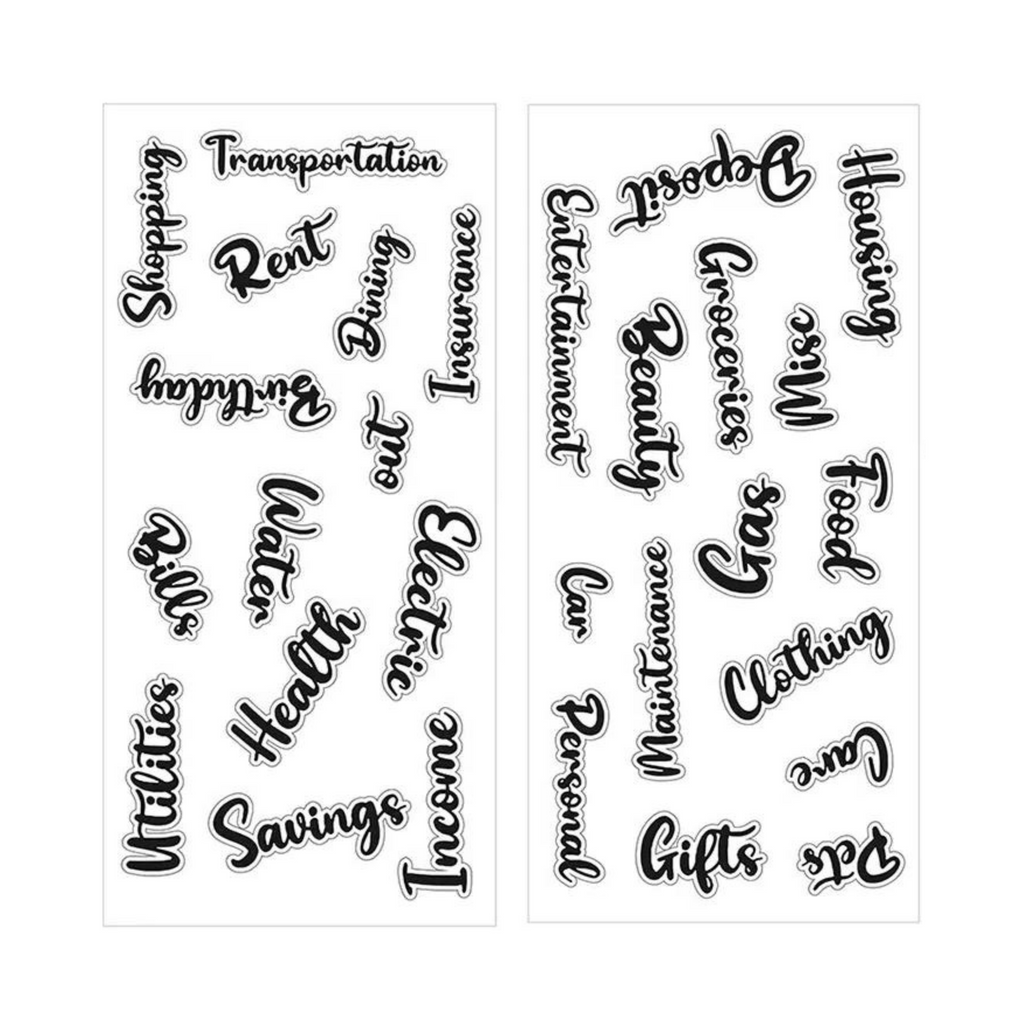 Transportation
Shopping
Rent
Dining
Insurance
Birthday
out
Water
Bills
Electric
Health
Utilities
Income
Savings
Deposit
Housing
Entertainment
Groceries
Beauty
Misc
Food
Gas
Car
Maintenance
Clothing
Personal
Care
Gifts
Pets